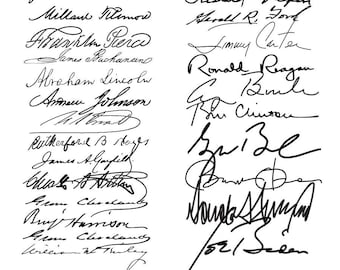 Millard Fillmore
Franklin Pierce
James Buchanan
Abraham Lincoln
Andrew Johnson
U.S. Grant
Rutherford B Hayes
James A. Garfield
Chester A Arthur
Grover Cleveland
Benj Harrison
Grover Cleveland
William McKinley
Gerald R. Ford
Jimmy Carter
Ronald Reagan
G Bush
Bill Clinton
Joe Biden